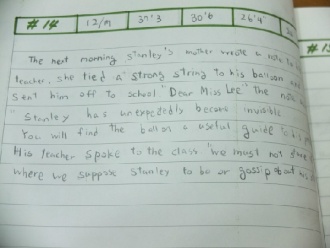 #14 12/M 37'3 30'6 26'4"
The next morning Stanley's mother wrote a note to
teacher. she tied a strong string to his balloon and
sent him off to school "Dear Miss Lee" The note
"Stanley has unexpectedly become invisible
You will find the ballon a useful guide to his
His teacher spoke to the class "we must not stare
where we suppose Stanley to be or gossip about his
#15